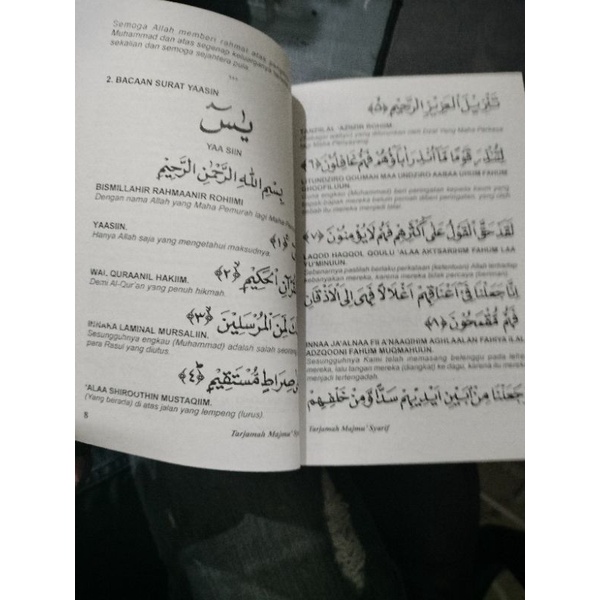 Semoga Allah memberi rahmat atas
Muhammad dan atas segenap keluarganya
sekalian dan semoga sejahtera pula.
***
2. BACAAN SURAT YAASIN
يٰسۤ
YAA SIIN
بِسْمِ اللهِ الرَّحْمٰنِ الرَّحِيْمِ
BISMILLAHIR RAHMAANIR ROHIIMI
Dengan nama Allah yang Maha Pemurah lagi Maha
﴿١﴾
YAASIIN.
Hanya Allah saja yang mengetahui maksudnya.
الْحَكِيْمِ ﴿٢﴾
WAL QURAANIL HAKIIM.
Demi Al-Qur'an yang penuh hikmah.
لَمِنَ الْمُرْسَلِيْنَ ﴿٣﴾
INNAKA LAMINAL MURSALIIN.
Sesungguhnya engkau (Muhammad) adalah salah seorang
para Rasul yang diutus.
صِرَاطٍ مُّسْتَقِيْمٍ ﴿٤﴾
'ALAA SHIROUTHIN MUSTAQIIM.
(Yang berada) di atas jalan yang lempeng (lurus).
8
Tarjamah Majmu' Syarif
تَنْزِيْلَ الْعَزِيْزِ الرَّحِيْمِ ﴿٥﴾
TANZIILAL 'AZIIZIR ROHIIM.
لِتُنْذِرَ قَوْمًا مَّا اُنْذِرَ اٰبَاؤُهُمْ فَهُمْ غَافِلُوْنَ ﴿٦﴾
LITUNDZIRO QOUMAN MAA UNDZIRO AABAA UHUM FAHUM
GHOOFILUUN.
لَقَدْ حَقَّ الْقَوْلُ عَلٰى اَكْثَرِهِمْ فَهُمْ لَا يُؤْمِنُوْنَ ﴿٧﴾
LAQOD HAQQOL QOULU 'ALAA AKTSARIHIM FAHUM LAA
YU'MINUUN.
Sebenarnya pastilah berlaku perkataan (ketentuan) Allah terhadap
اِنَّا جَعَلْنَا فِيْ اَعْنَاقِهِمْ اَغْلَالًا فَهِيَ اِلَى الْاَذْقَانِ
فَهُمْ مُّقْمَحُوْنَ ﴿٨﴾
INNAA JA'ALNAA FII A'NAAQHIM AGHLAALAN FAHIYA ILAL
ADZQOONI FAHUM MUQMAHUUN.
Sesungguhnya Kami telah memasang belenggu pada leher
mereka, lalu tangan mereka (diangkat) ke dagu, karena itu mereka
jadi tertengadah.
جَعَلْنَا مِنْ بَيْنِ اَيْدِيْهِمْ سَدًّا وَّمِنْ خَلْفِهِمْ
Tarjamah Majmu' Syarif